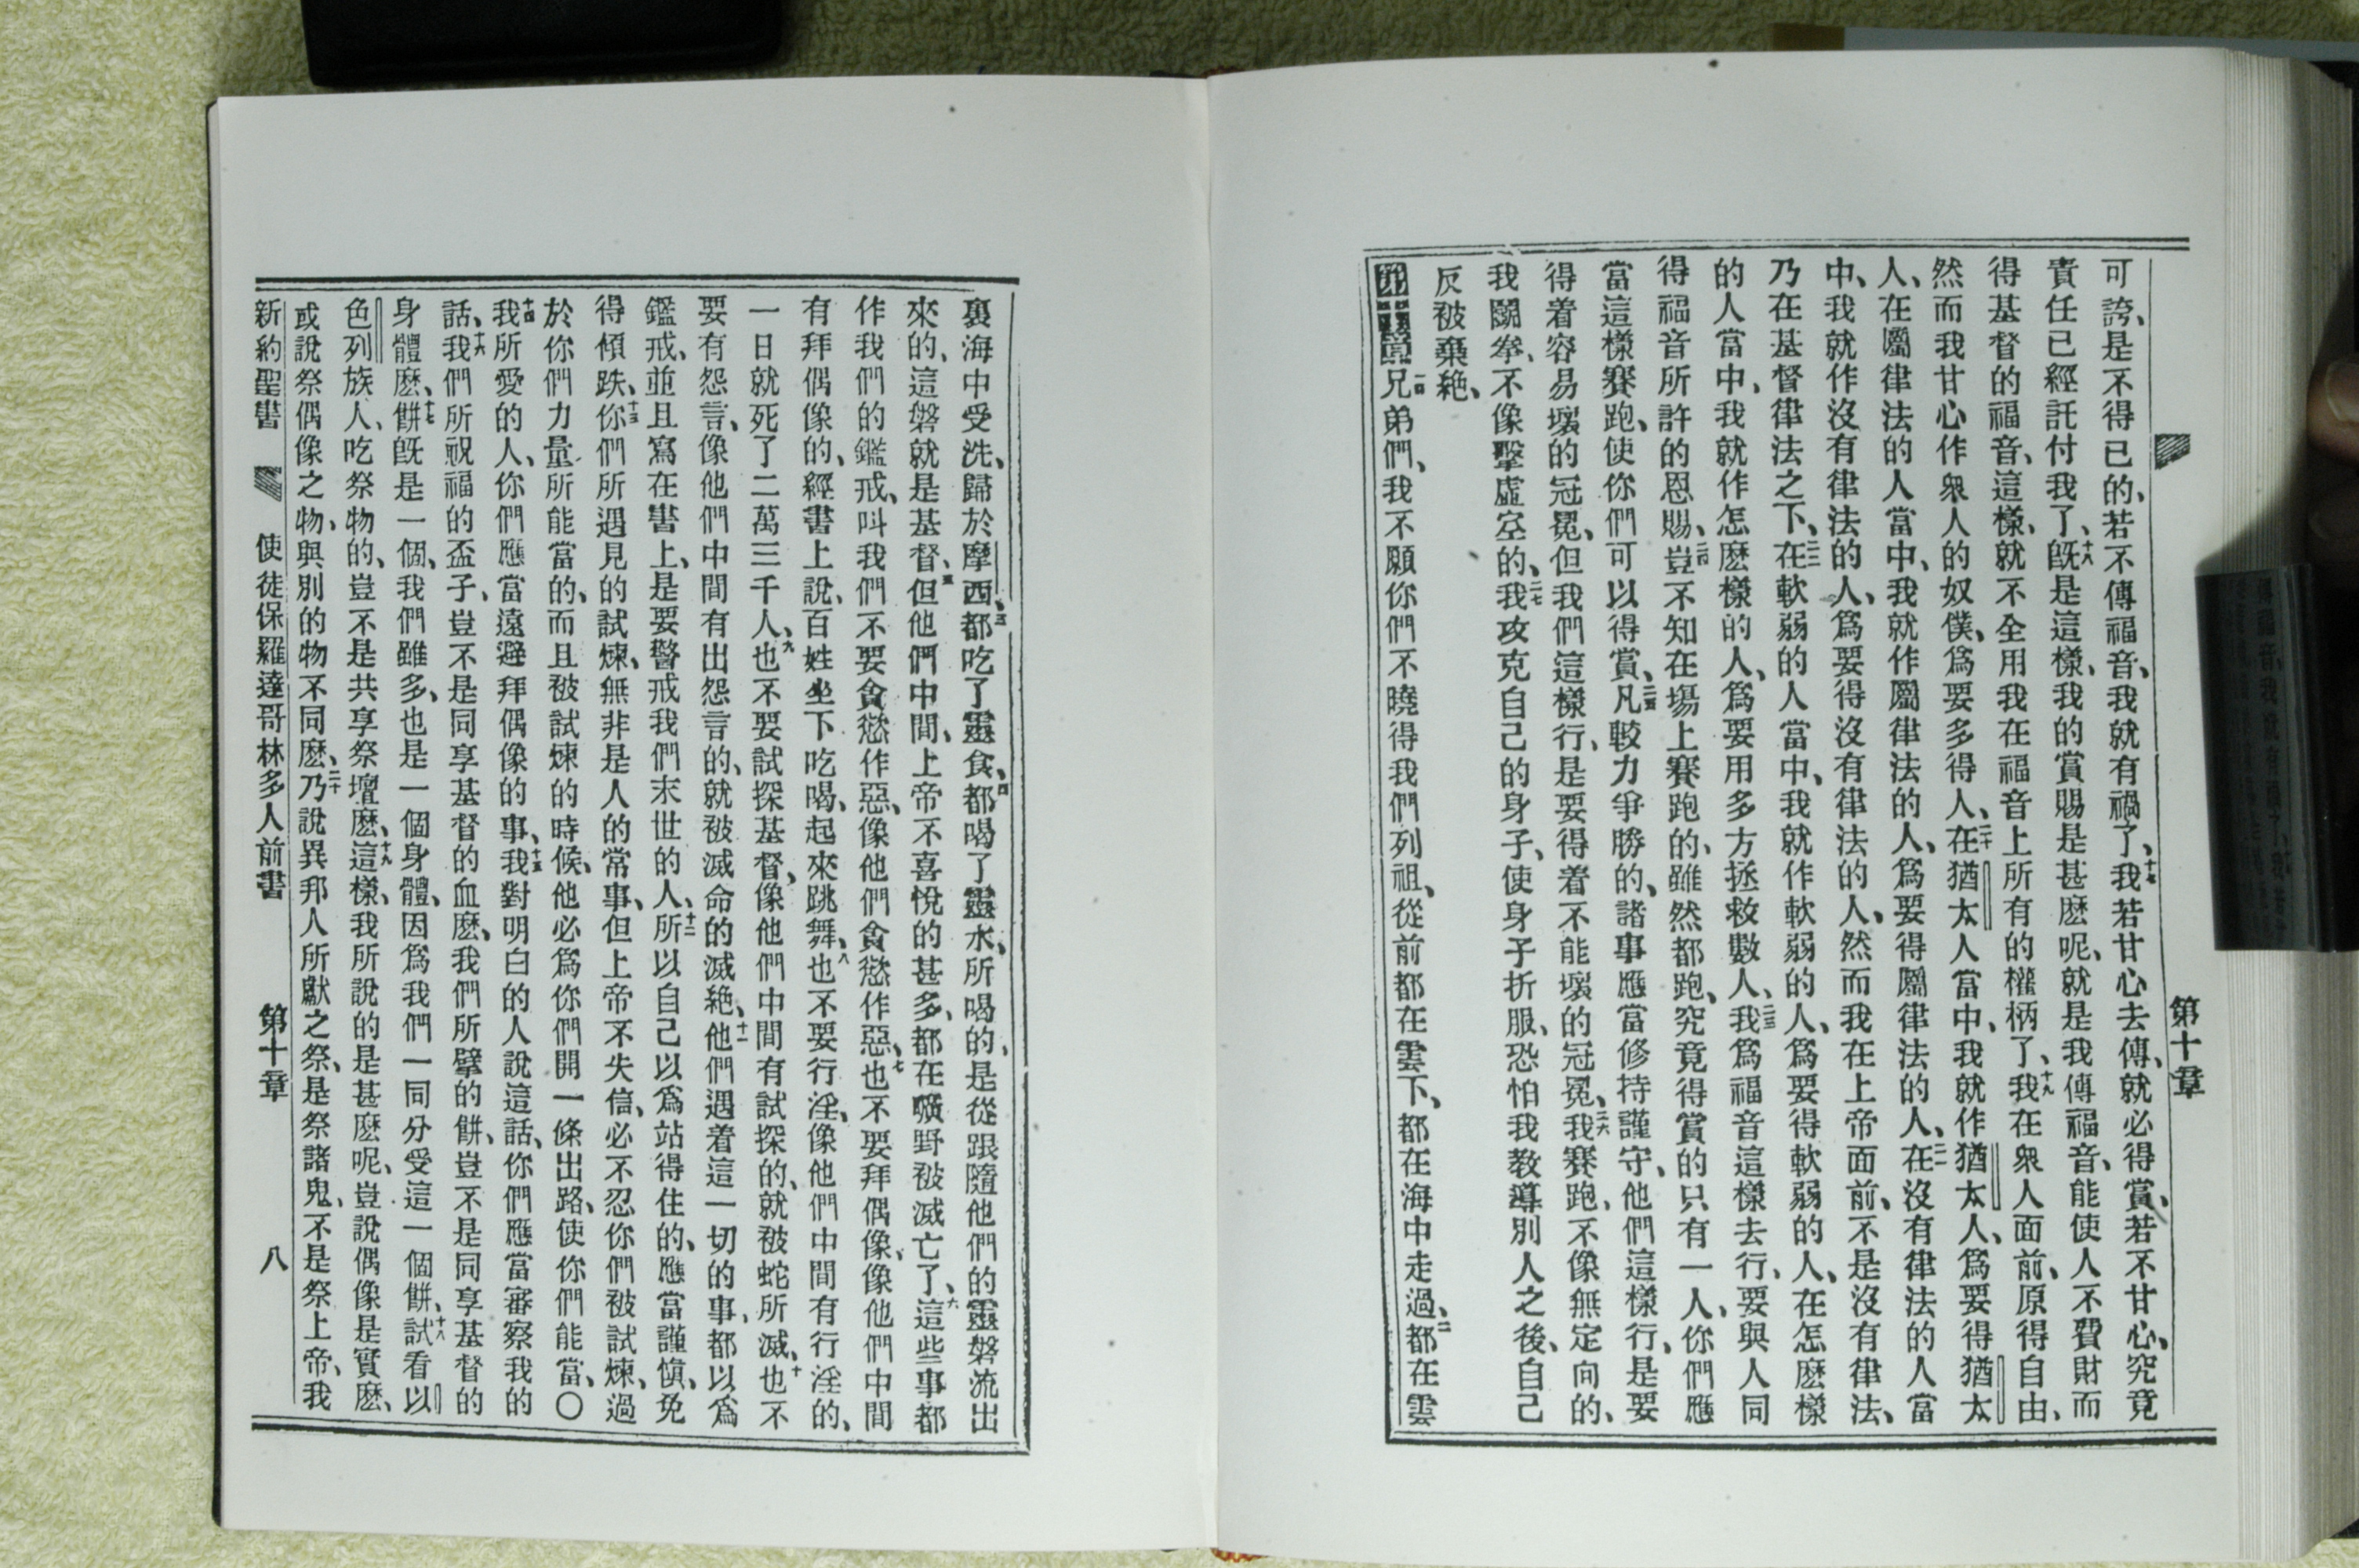 第十章
可誇、是不得已的、若不傳福音、我就有禍了、十七我若甘心去傳、就必得賞、若不甘心、究竟
責任已經託付我了、十八旣是這樣、我的賞賜是甚麽呢、就是我傳福音、能使人不費財而
得基督的福音、這樣、就不全用我在福音上所有的權柄了、十九我在衆人面前、原得自由、
然而我甘心作衆人的奴僕、爲要多得人、二十在猶太人當中、我就作猶太人、爲要得猶太
人、在屬律法的人當中、我就作屬律法的人、爲要得屬律法的人、二一在沒有律法的人當
中、我就作沒有律法的人、爲要得沒有律法的人、然而我在上帝面前、不是沒有律法、
乃在基督律法之下、二二在軟弱的人當中、我就作軟弱的人、爲要得軟弱的人、在怎麽樣
的人當中、我就作怎麽樣的人、爲要用多方拯救數人、二三我爲福音這樣去行、要與人同
得福音所許的恩賜、二四豈不知在塲上賽跑的、雖然都跑、究竟得賞的只有一人、你們應
當這樣賽跑、使你們可以得賞、二五凡較力爭勝的、諸事應當修持謹守、他們這樣行、是要
得着容易壞的冠冕、但我們這樣行、是要得着不能壞的冠冕、二六我賽跑、不像無定向的、
我鬭拳、不像擊虛空的、二七我攻克自己的身子、使身子折服、恐怕我教導別人之後、自己
反被棄絕、
第十章一兄弟們、我不願你們不曉得我們列祖、從前都在雲下、都在海中走過、二都在雲
裏海中受洗、歸於摩西、三都吃了靈食、四都喝了靈水、所喝的、是從跟隨他們的靈磐流出
來的、這磐就是基督、五但他們中間、上帝不喜悅的甚多、都在曠野被滅亡了、六這些事都
作我們的鑑戒、叫我們不要貪慾作惡、像他們貪慾作惡、七也不要拜偶像、像他們中間
有拜偶像的、經書上說、百姓坐下吃喝、起來跳舞、八也不要行淫、像他們中間有行淫的、
一日就死了二萬三千人、九也不要試探基督、像他們中間有試探的、就被蛇所滅、十也不
要有怨言、像他們中間有出怨言的、就被滅命的滅絕、十一他們遇着這一切的事、都以爲
鑑戒、並且寫在書上、是要警戒我們末世的人、十二所以自己以爲站得住的、應當謹愼、免
得傾跌、十三你們所遇見的試煉、無非是人的常事、但上帝不失信、必不忍你們被試煉、過
於你們力量所能當的、而且被試煉的時候、他必爲你們開一條出路、使你們能當、〇
十四我所愛的人、你們應當遠避拜偶像的事、十五我對明白的人說這話、你們應當審察我的
話、十六我們所祝福的盃子、豈不是同享基督的血麽、我們所擘的餅、豈不是同享基督的
身體麽、十七餅旣是一個、我們雖多、也是一個身體、因爲我們一同分受這一個餅、十八試看以
色列族人、吃祭物的、豈不是共享祭壇麽、十九這樣、我所說的是甚麽呢、豈說偶像是實麽、
或說祭偶像之物、與別的物不同麽、二十乃說異邦人所獻之祭、是祭諸鬼、不是祭上帝、我
新約聖書 使徒保羅達哥林多人前書 第十章 八